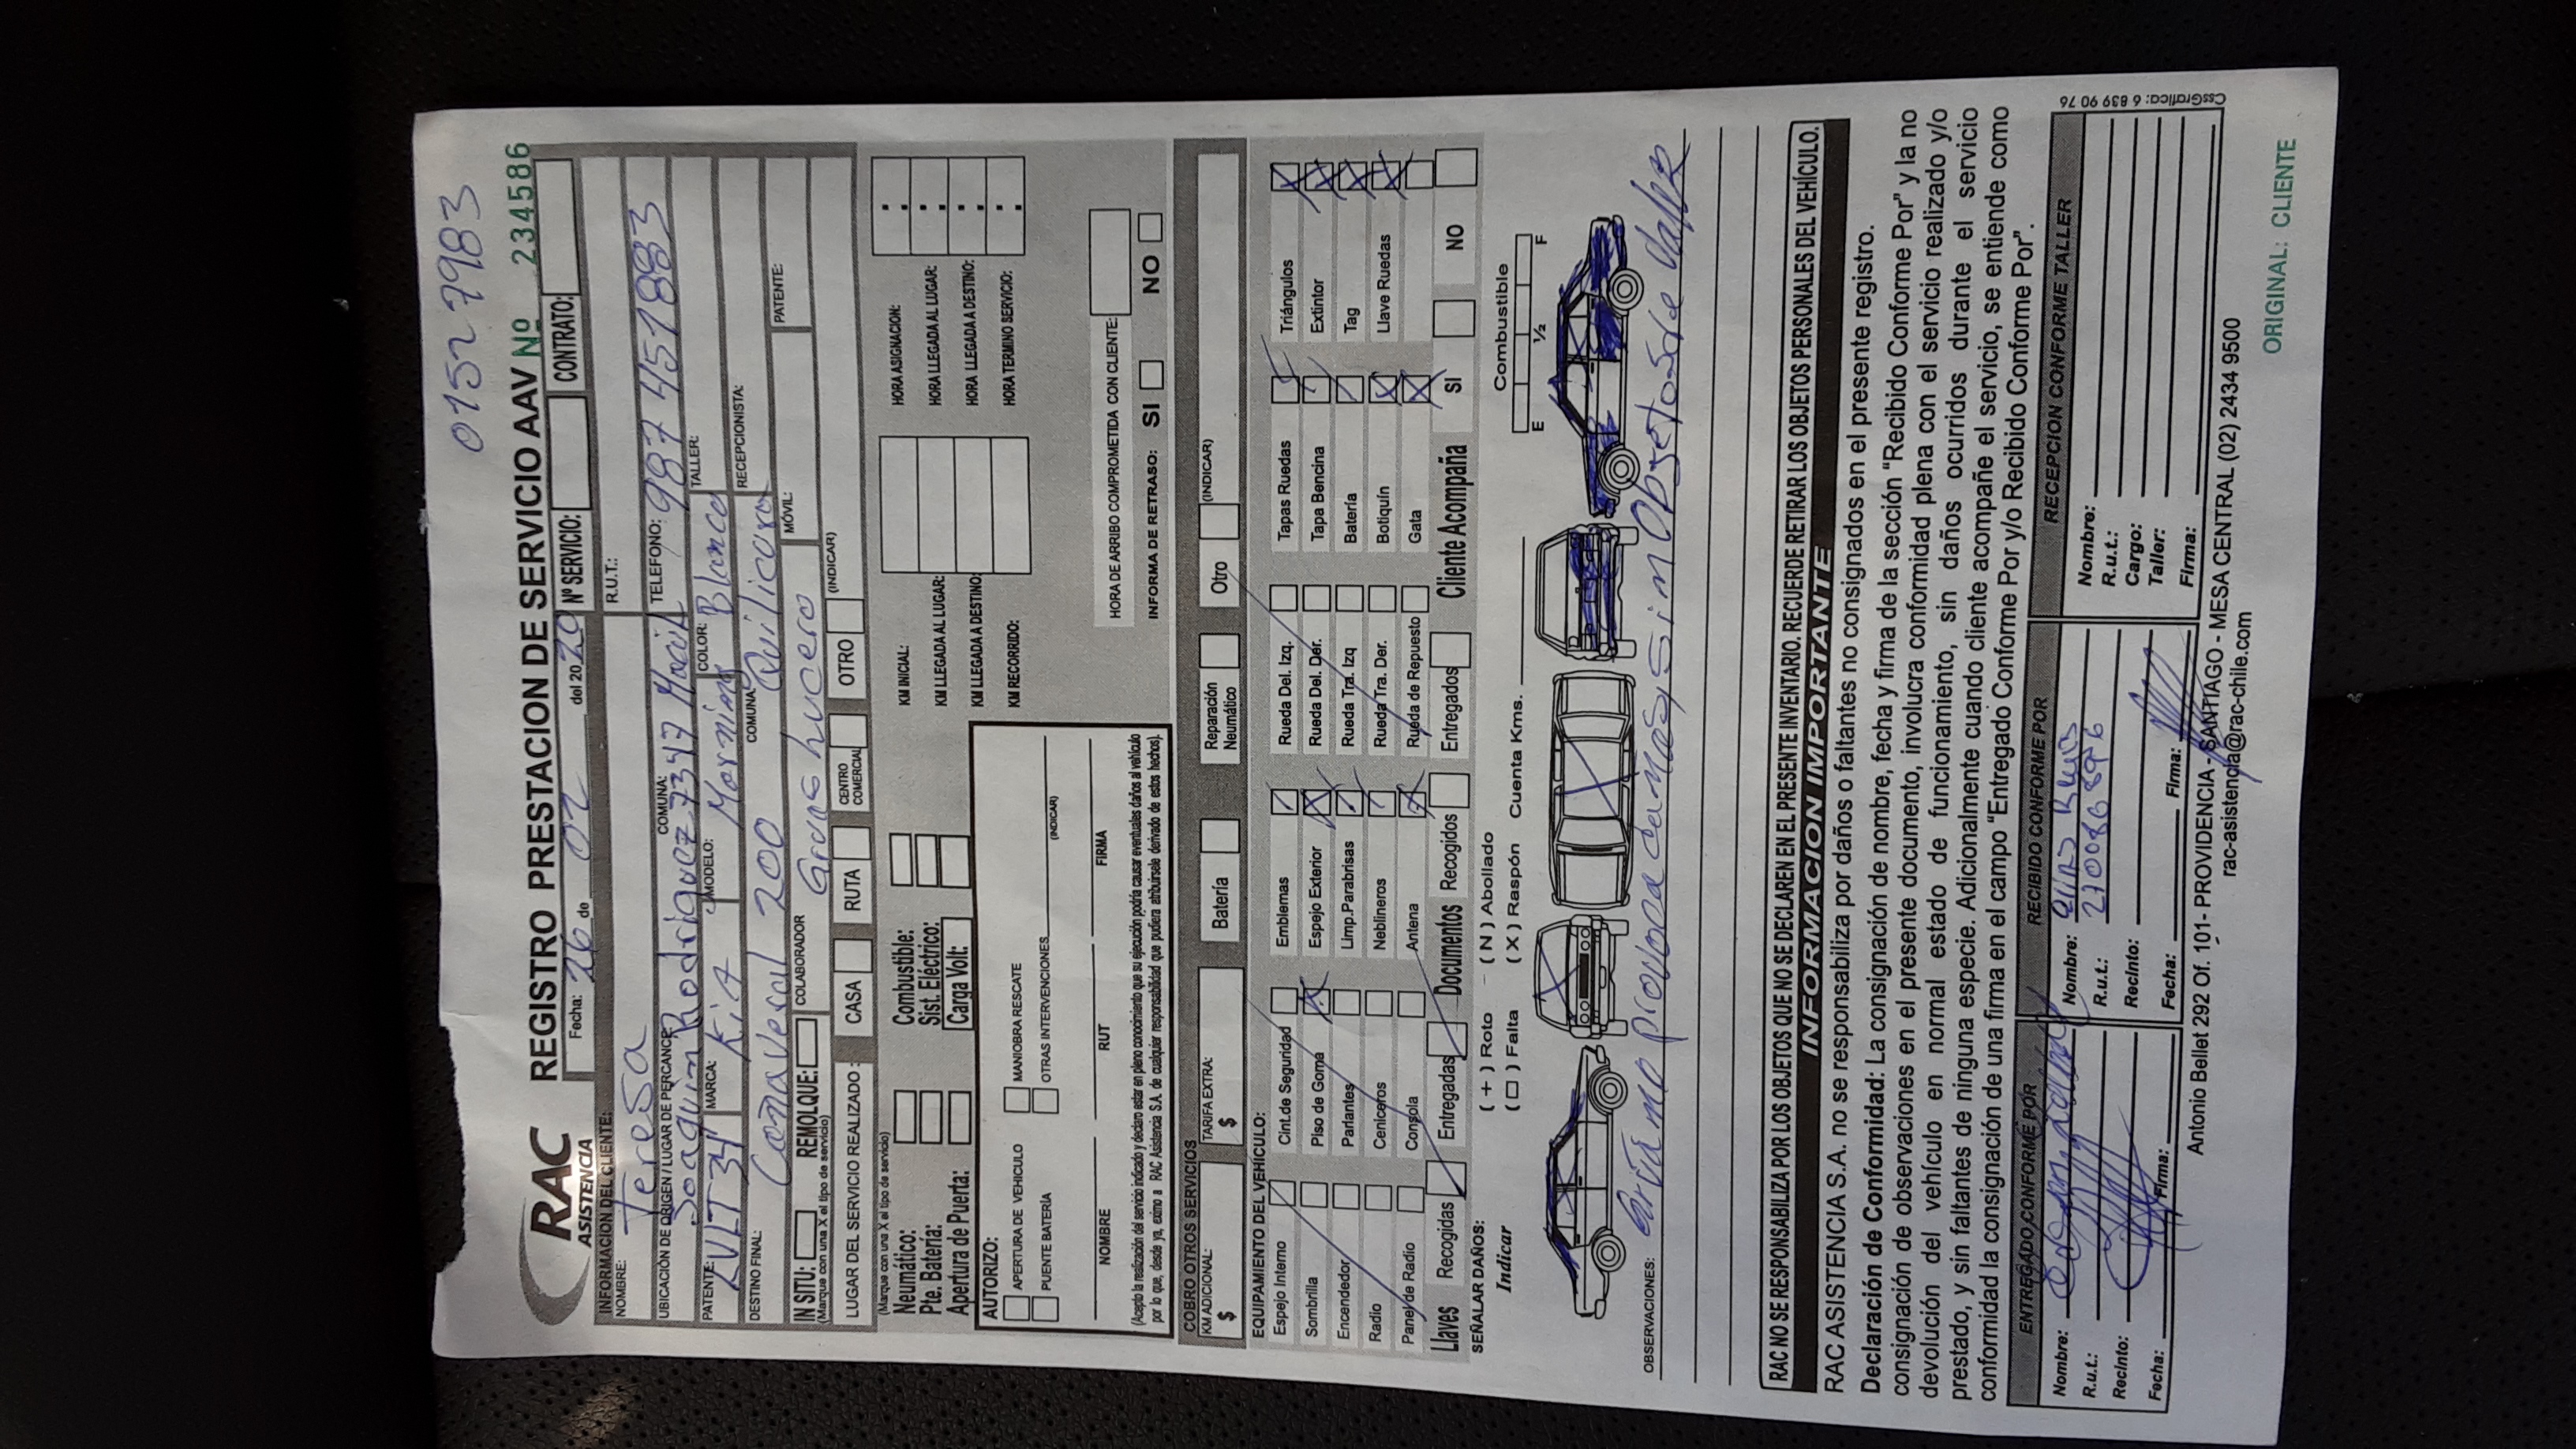 01527983
RAC
ASISTENCIA
REGISTRO PRESTACION DE SERVICIO AAV Nº 234586
Fecha: 26 de 02 del 2020 Nº SERVICIO: CONTRATO:
INFORMACION DEL CLIENTE:
NOMBRE: Teresa R.U.T.:
UBICACIÓN DE ORIGEN / LUGAR DE PERCANCE COMUNA: TELEFONO: 987 4518883
Joaquin Rodriguez 7347 Macul
PATENTE: LVLT34 MARCA: Kia MODELO: Morning COLOR: Blanco TALLER:
DESTINO FINAL: Cañaveral 200 COMUNA: Quilicura RECEPCIONISTA:
IN SITU: REMOLQUE: COLABORADOR Gruas Lucero MÓVIL: PATENTE:
(Marque con una X el tipo de servicio)
LUGAR DEL SERVICIO REALIZADO : CASA RUTA CENTRO COMERCIAL OTRO (INDICAR)
(Marque con una X el tipo de servicio)
Neumático: Combustible:
Pte. Batería: Sist. Eléctrico:
Apertura de Puerta: Carga Volt:
KM INICIAL: HORA ASIGNACION:
KM LLEGADA AL LUGAR: HORA LLEGADA AL LUGAR:
KM LLEGADA A DESTINO: HORA LLEGADA A DESTINO:
KM RECORRIDO: HORA TERMINO SERVICIO:
AUTORIZO:
APERTURA DE VEHICULO MANIOBRA RESCATE
PUENTE BATERÍA OTRAS INTERVENCIONES (INDICAR)
NOMBRE RUT FIRMA
(Acepto la realización del servicio indicado y declaro estar en pleno conocimiento que su ejecución podría causar eventuales daños al vehículo
por lo que, desde ya, eximo a RAC Asistencia S.A. de cualquier responsabilidad que pudiera atribuírsele derivado de estos hechos).
HORA DE ARRIBO COMPROMETIDA CON CLIENTE:
INFORMA DE RETRASO: SI NO
COBRO OTROS SERVICIOS
KM ADICIONAL: $ TARIFA EXTRA: $ Batería Reparación Neumático Otro (INDICAR)
EQUIPAMIENTO DEL VEHÍCULO:
Espejo Interno Cint.de Seguridad Emblemas Rueda Del. Izq. Tapas Ruedas Triángulos
Sombrilla Piso de Goma Espejo Exterior Rueda Del. Der. Tapa Bencina Extintor
Encendedor Parlantes Limp.Parabrisas Rueda Tra. Izq Batería Tag
Radio Ceniceros Neblineros Rueda Tra. Der. Botiquín Llave Ruedas
Panel de Radio Consola Antena Rueda de Repuesto Gata
Llaves Recogidas Entregadas Documentos Recogidos Entregados Cliente Acompaña SI NO
SEÑALAR DAÑOS: ( + ) Roto ( N ) Abollado
Indicar ( □ ) Falta ( X ) Raspón Cuenta Kms. Combustible
E ½ F
OBSERVACIONES:
RAC NO SE RESPONSABILIZA POR LOS OBJETOS QUE NO SE DECLAREN EN EL PRESENTE INVENTARIO. RECUERDE RETIRAR LOS OBJETOS PERSONALES DEL VEHÍCULO.
INFORMACION IMPORTANTE
RAC ASISTENCIA S.A. no se responsabiliza por daños o faltantes no consignados en el presente registro.
Declaración de Conformidad: La consignación de nombre, fecha y firma de la sección "Recibido Conforme Por" y la no
consignación de observaciones en el presente documento, involucra conformidad plena con el servicio realizado y/o
devolución del vehículo en normal estado de funcionamiento, sin daños ocurridos durante el servicio
prestado, y sin faltantes de ninguna especie. Adicionalmente cuando cliente acompañe el servicio, se entiende como
conformidad la consignación de una firma en el campo "Entregado Conforme Por y/o Recibido Conforme Por".
ENTREGADO CONFORME POR RECIBIDO CONFORME POR RECEPCION CONFORME TALLER
Nombre: Nombre: Nombre:
R.u.t.: R.u.t.: R.u.t.:
Recinto: Recinto: Cargo:
Taller:
Fecha: Firma: Fecha: Firma: Firma:
Antonio Bellet 292 Of. 101- PROVIDENCIA - SANTIAGO - MESA CENTRAL (02) 2434 9500
rac-asistencia@rac-chile.com
ORIGINAL: CLIENTE
CssGrafica: 6 839 90 76